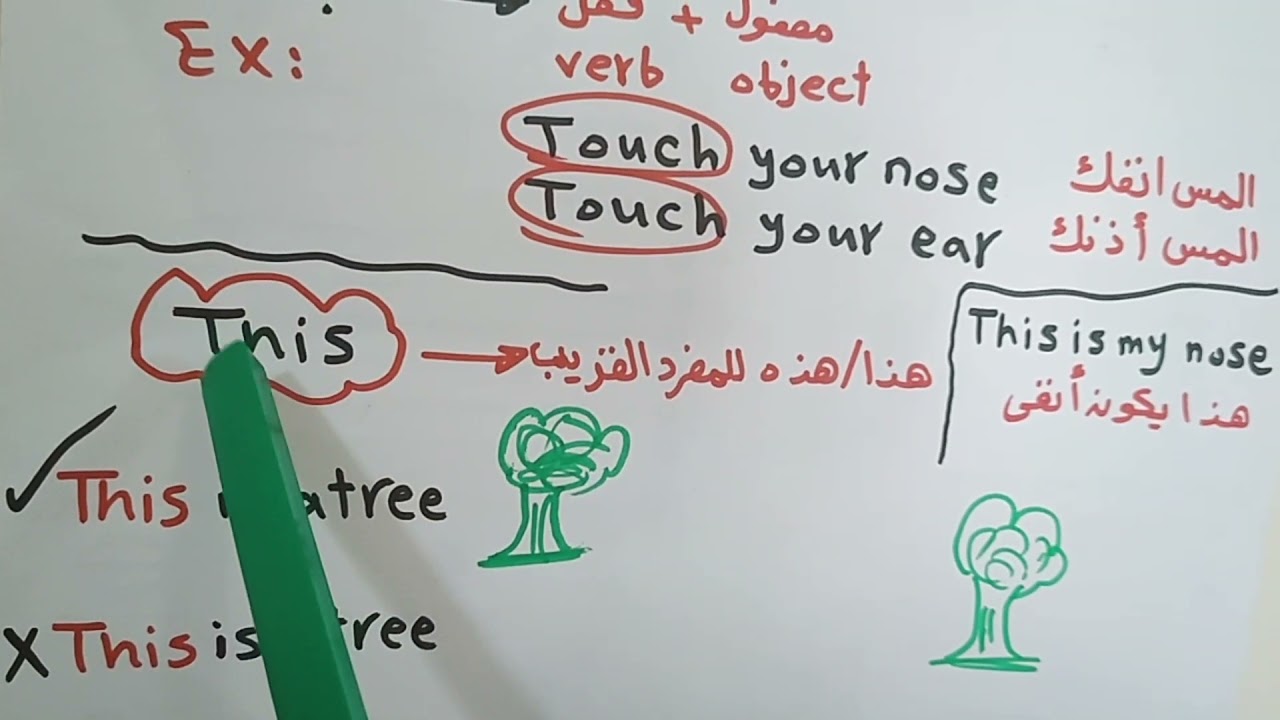 فعل + مفعول
Ex:
verb object
Touch your nose المس انفك
Touch your ear المس أذنك
This هذا/هذه للمفرد القريب
This is my nose
هذا يكون أنفي
✓ This a tree
X This is tree